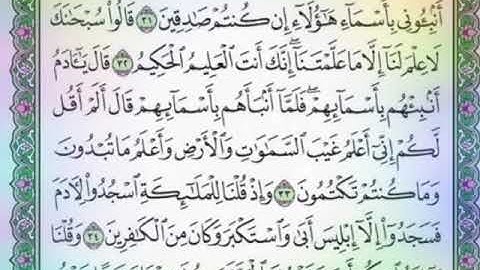 أَنۢبِـُٔونِى بِأَسْمَآءِ هَٰٓؤُلَآءِ إِن كُنتُمْ صَٰدِقِينَ ٣١ قَالُوا۟ سُبْحَٰنَكَ
لَا عِلْمَ لَنَآ إِلَّا مَا عَلَّمْتَنَآ إِنَّكَ أَنتَ ٱلْعَلِيمُ ٱلْحَكِيمُ ٣٢ قَالَ يَٰٓـَٔادَمُ
أَنۢبِئْهُم بِأَسْمَآئِهِمْ فَلَمَّآ أَنۢبَأَهُم بِأَسْمَآئِهِمْ قَالَ أَلَمْ أَقُل
لَّكُمْ إِنِّىٓ أَعْلَمُ غَيْبَ ٱلسَّمَٰوَٰتِ وَٱلْأَرْضِ وَأَعْلَمُ مَا تُبْدُونَ
وَمَا كُنتُمْ تَكْتُمُونَ ٣٣ وَإِذْ قُلْنَا لِلْمَلَٰٓئِكَةِ ٱسْجُدُوا۟ لِـَٔادَمَ
فَسَجَدُوٓا۟ إِلَّآ إِبْلِيسَ أَبَىٰ وَٱسْتَكْبَرَ وَكَانَ مِنَ ٱلْكَٰفِرِينَ ٣٤ وَقُلْنَا